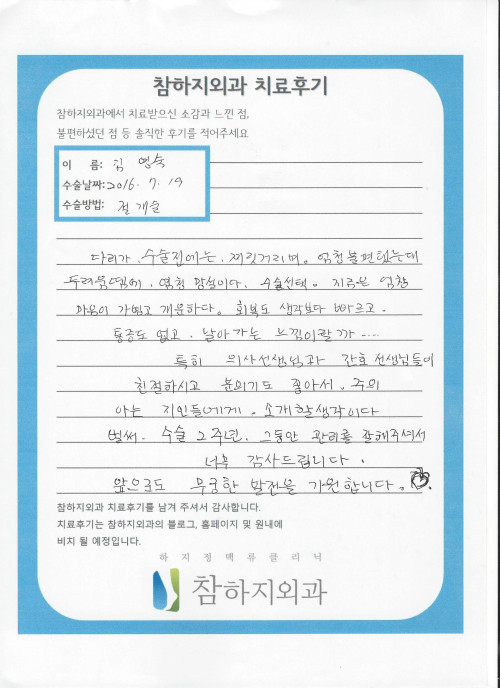 참하지외과 치료후기
참하지외과에서 치료받으신 소감과 느낀 점,
불편하셨던 점 등 솔직한 후기를 적어주세요
이 름: 김 영숙
수술날짜: 2016. 7. 19
수술방법: 절개술
다리가, 수술전에는, 찌릿거리며, 엄청불편했는데
두려움땜에, 엄청 망설이다, 수술선택. 지금은 엄청
마음이 가볍고 개운하다. 회복도 생각보다 빠르고.
통증도 없고. 날아가는 느낌이랄까 ....
특히 의사선생님과 간호선생님들이
친절하시고 분위기도 좋아서. 주위
아는 지인들에게. 소개할생각이다
벌써. 수술 2주년. 그동안 관리를 잘해주셔서
너무 감사드립니다.
앞으로도 무궁한 발전을 기원합니다.
참하지외과 치료후기를 남겨 주셔서 감사합니다.
치료후기는 참하지외과의 블로그, 홈페이지 및 원내에
비치 될 예정입니다.
하지정맥류클리닉
참하지외과